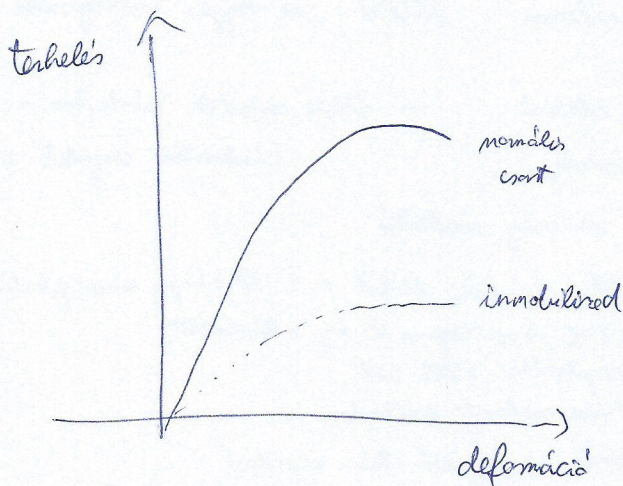 terhelés
normális
csont
immobilized
deformáció